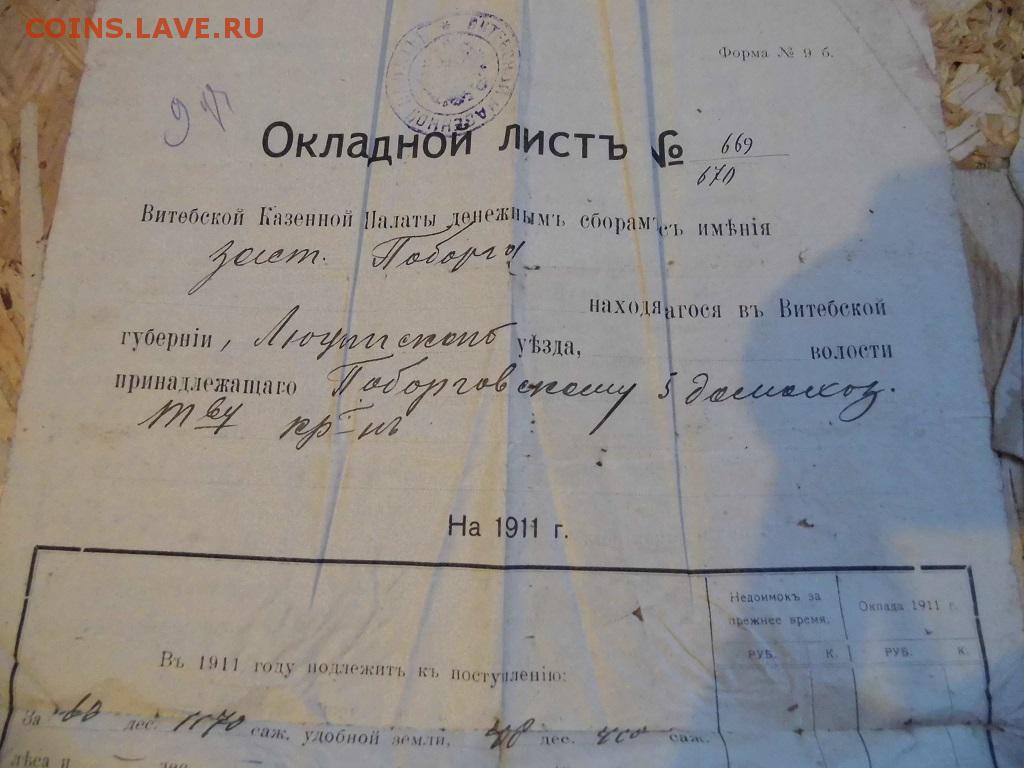 COINS.LAVE.RU
Форма № 9 б.
Окладной листъ № 669
670
Витебской Казенной Палаты денежнымъ сборамъ съ имѣнія
заст. Поборги
находящагося въ Витебской
губерніи, Люцинскомъ уѣзда, волости
принадлежащаго Поборговскому 5 домохоз.
тву кр-нъ
На 1911 г.
Недоимокъ за прежнее время.
Оклада 1911 г.
РУБ. К. РУБ. К.
Въ 1911 году подлежитъ къ поступленію:
За 60 дес. 1170 саж. удобной земли, дес. саж.
лѣса и дес.